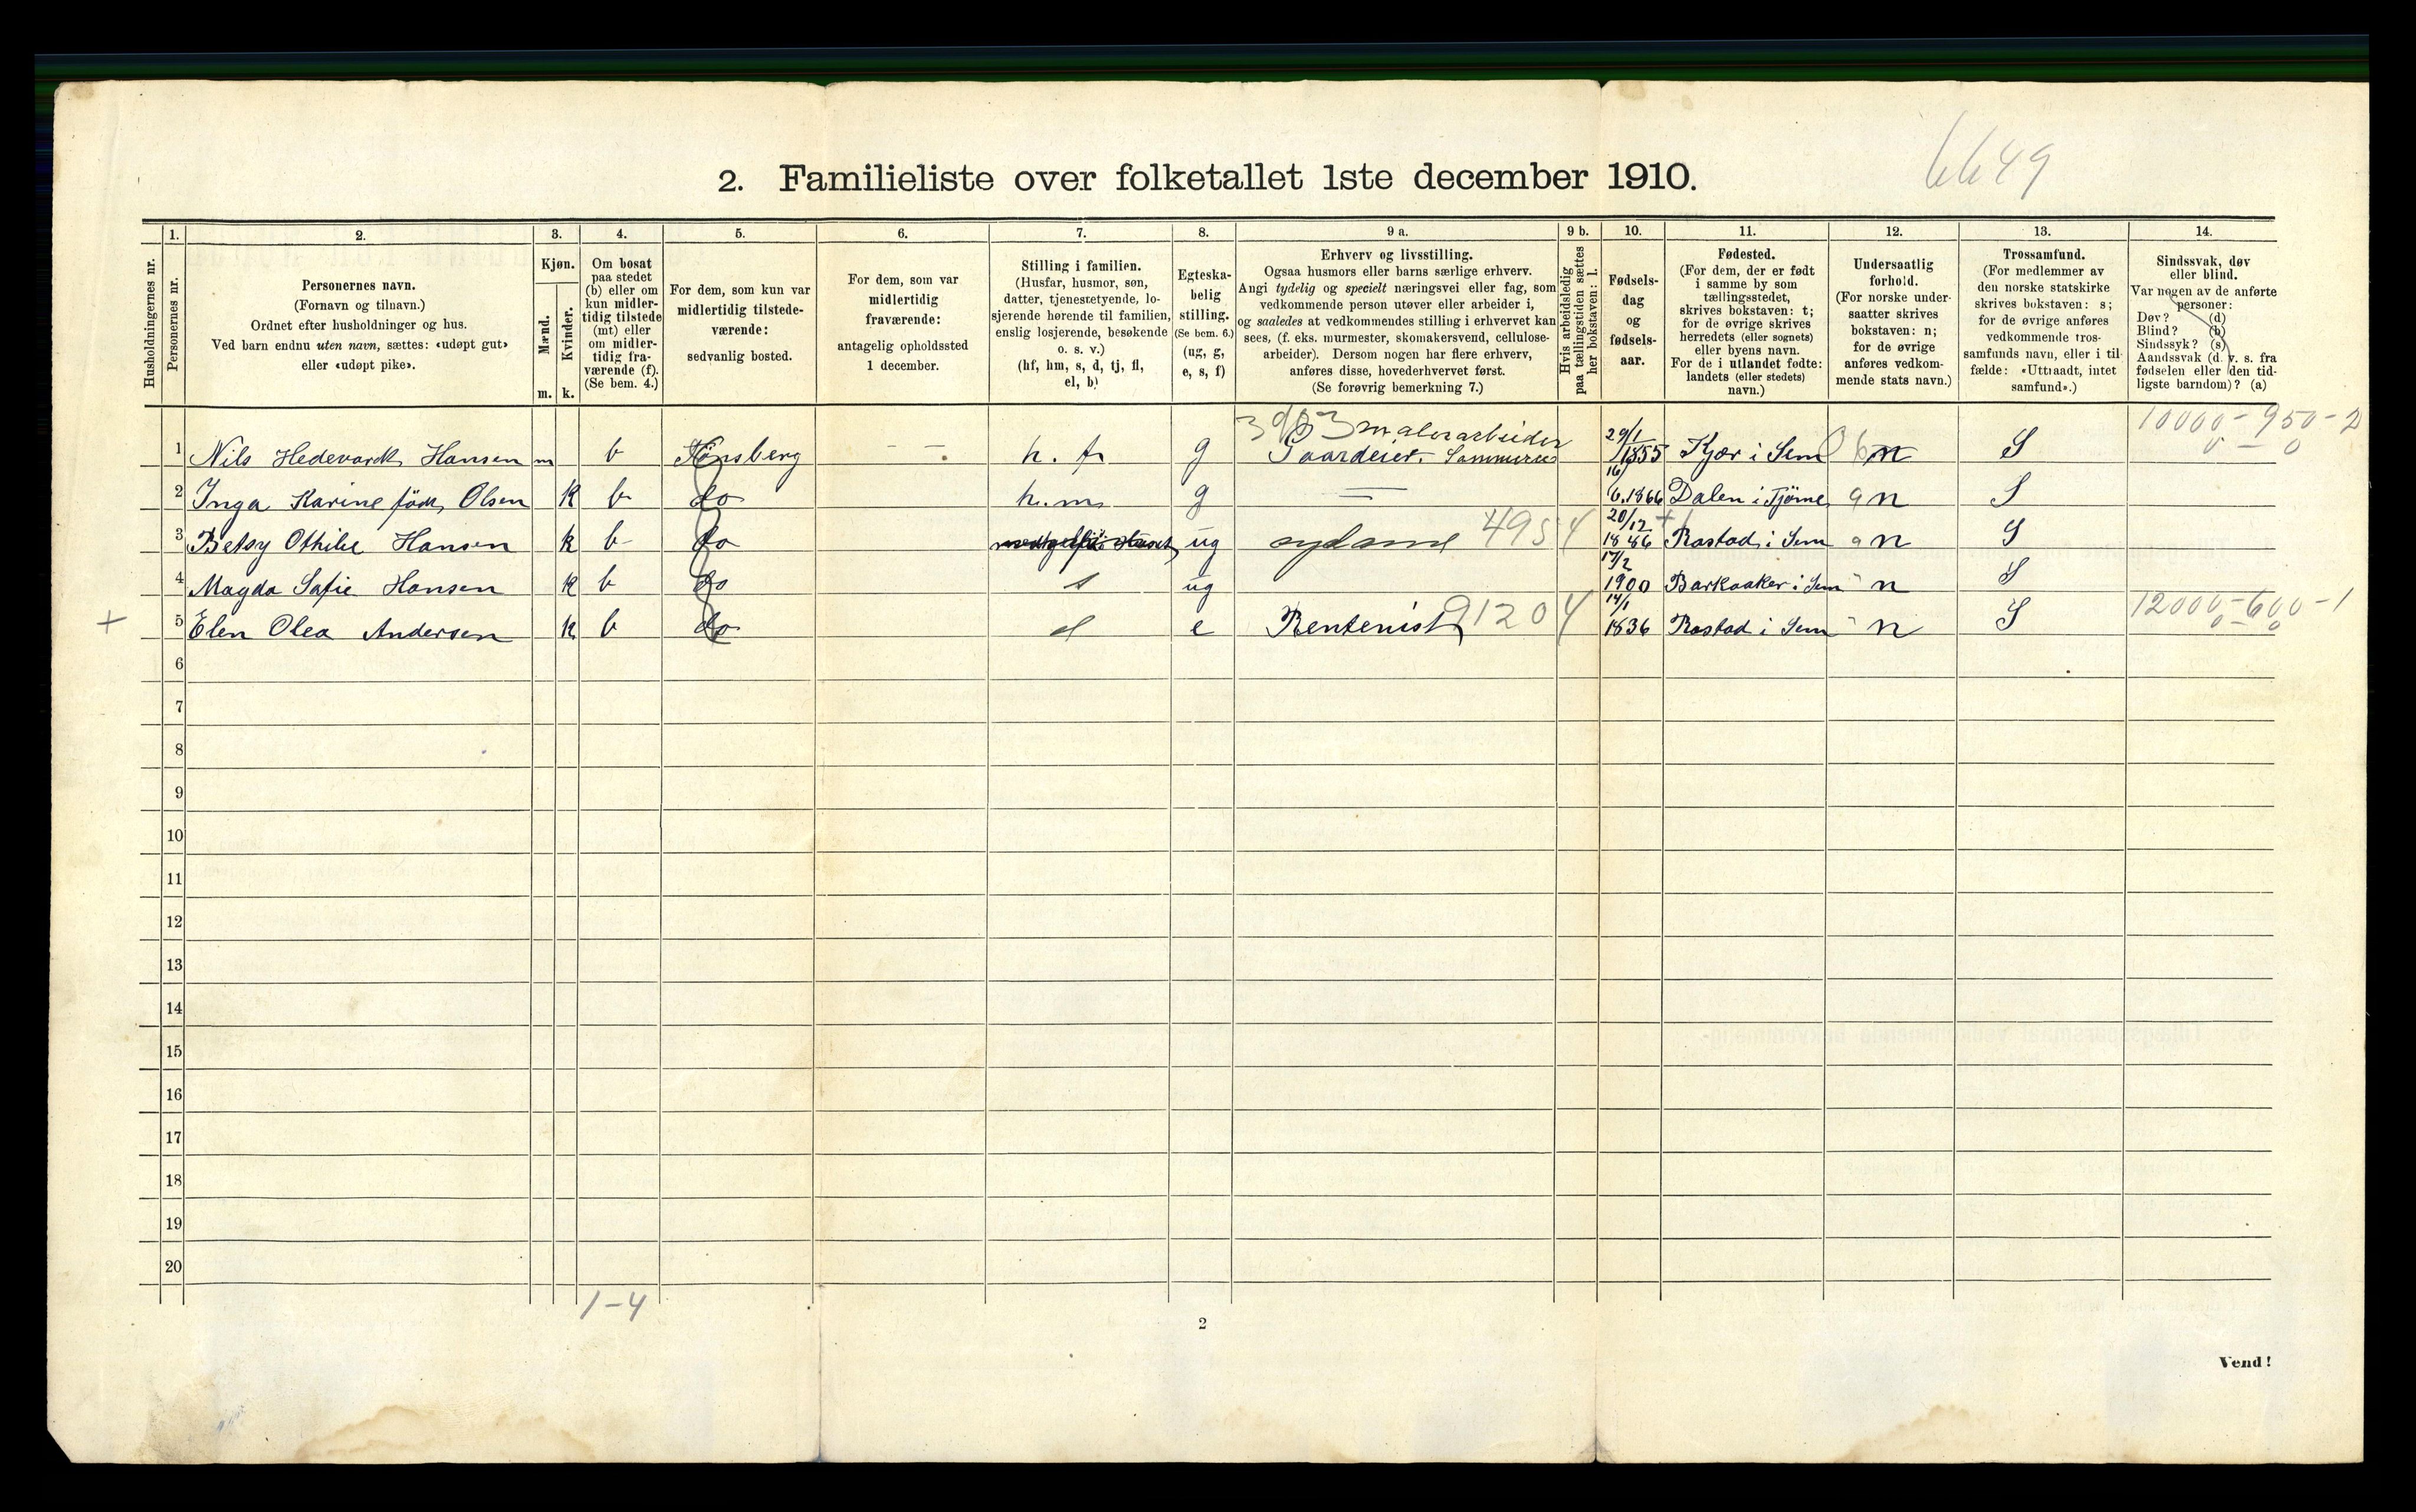 6649
2. Familieliste over folketallet 1ste december 1910.
Husholdningernes nr.
1.
Personernes nr.
2.
Personernes navn.
(Fornavn og tilnavn.)
Ordnet efter husholdninger og hus.
Ved barn endnu uten navn, sættes: «udøpt gut»
eller «udøpt pike».
3.
Kjøn.
Mænd.
Kvinder.
m.
k.
4.
Om bosat
paa stedet
(b) eller om
kun midler-
tidig tilstede
(mt) eller
om midler-
tidig fra-
værende (f).
(Se bem. 4.)
5.
For dem, som kun var
midlertidig tilstede-
værende:
sedvanlig bosted.
6.
For dem, som var
midlertidig
fraværende:
antagelig opholdssted
1 december.
7.
Stilling i familien.
(Husfar, husmor, søn,
datter, tjenestetyende, lo-
sjerende hørende til familien,
enslig losjerende, besøkende
o. s. v.)
(hf, hm, s, d, tj, fl,
el, b)
8.
Egteska-
belig
stilling.
(Se bem. 6.)
(ug, g,
e, s, f)
9 a.
Erhverv og livsstilling.
Ogsaa husmors eller barns særlige erhverv.
Angi tydelig og specielt næringsvei eller fag, som
vedkommende person utøver eller arbeider i,
og saaledes at vedkommendes stilling i erhvervet kan
sees, (f. eks. murmester, skomakersvend, cellulose-
arbeider). Dersom nogen har flere erhverv,
anføres disse, hovederhvervet først.
(Se forøvrig bemerkning 7.)
9 b.
Hvis arbeidsledig
paa tællingstiden sættes
her bokstaven: l.
10.
Fødsels-
dag
og
fødsels-
aar.
11.
Fødested.
(For dem, der er født
i samme by som
tællingsstedet,
skrives bokstaven: t;
for de øvrige skrives
herredets (eller sognets)
eller byens navn.
For de i utlandet fødte:
landets (eller stedets)
navn.)
12.
Undersaatlig
forhold.
(For norske under-
saatter skrives
bokstaven: n;
for de øvrige
anføres vedkom-
mende stats navn.)
13.
Trossamfund.
(For medlemmer av
den norske statskirke
skrives bokstaven: s;
for de øvrige anføres
vedkommende tros-
samfunds navn, eller i til-
fælde: «Uttraadt, intet
samfund».)
14.
Sindssvak, døv
eller blind.
Var nogen av de anførte
personer:
Døv? (d)
Blind? (b)
Sindssyk? (s)
Aandssvak (d. v. s. fra
fødselen eller den tid-
ligste barndom)? (a)
malerarbeider 10000-950-2
1 Nils Hedevardt Hansen m b Tønsberg h. f. g Gaardeier 29/1 1855 Kjær i Sem n S
2 Inga Karine född Olsen k b do h.m. g 16/6.1866 Dalen i Tjöme n S
3 Betsy Othilie Hansen k b do ug sydame 4954 20/12 1886 Rastad i Sem n S
4 Magda Sofie Hansen k b do ug 17/2 1900 Barkaaker i Sem n S
+ 5 Elen Olea Andersen k b do d e Rentenist 91204 14/1 1836 Rastad i Sem n S 12000-600-1
6
7
8
9
10
11
12
13
14
15
16
17
18
19
20
1-4
2
Vend!